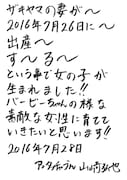 ザキヤマの妻が〜
2016年7月26日に〜
出産〜
す〜る〜
という事で女の子が
生まれました!!
バービーちゃんの様な
素敵な女性に育てて
いきたいと思います!!
2016年7月28日
アンタッチャブル 山崎弘也